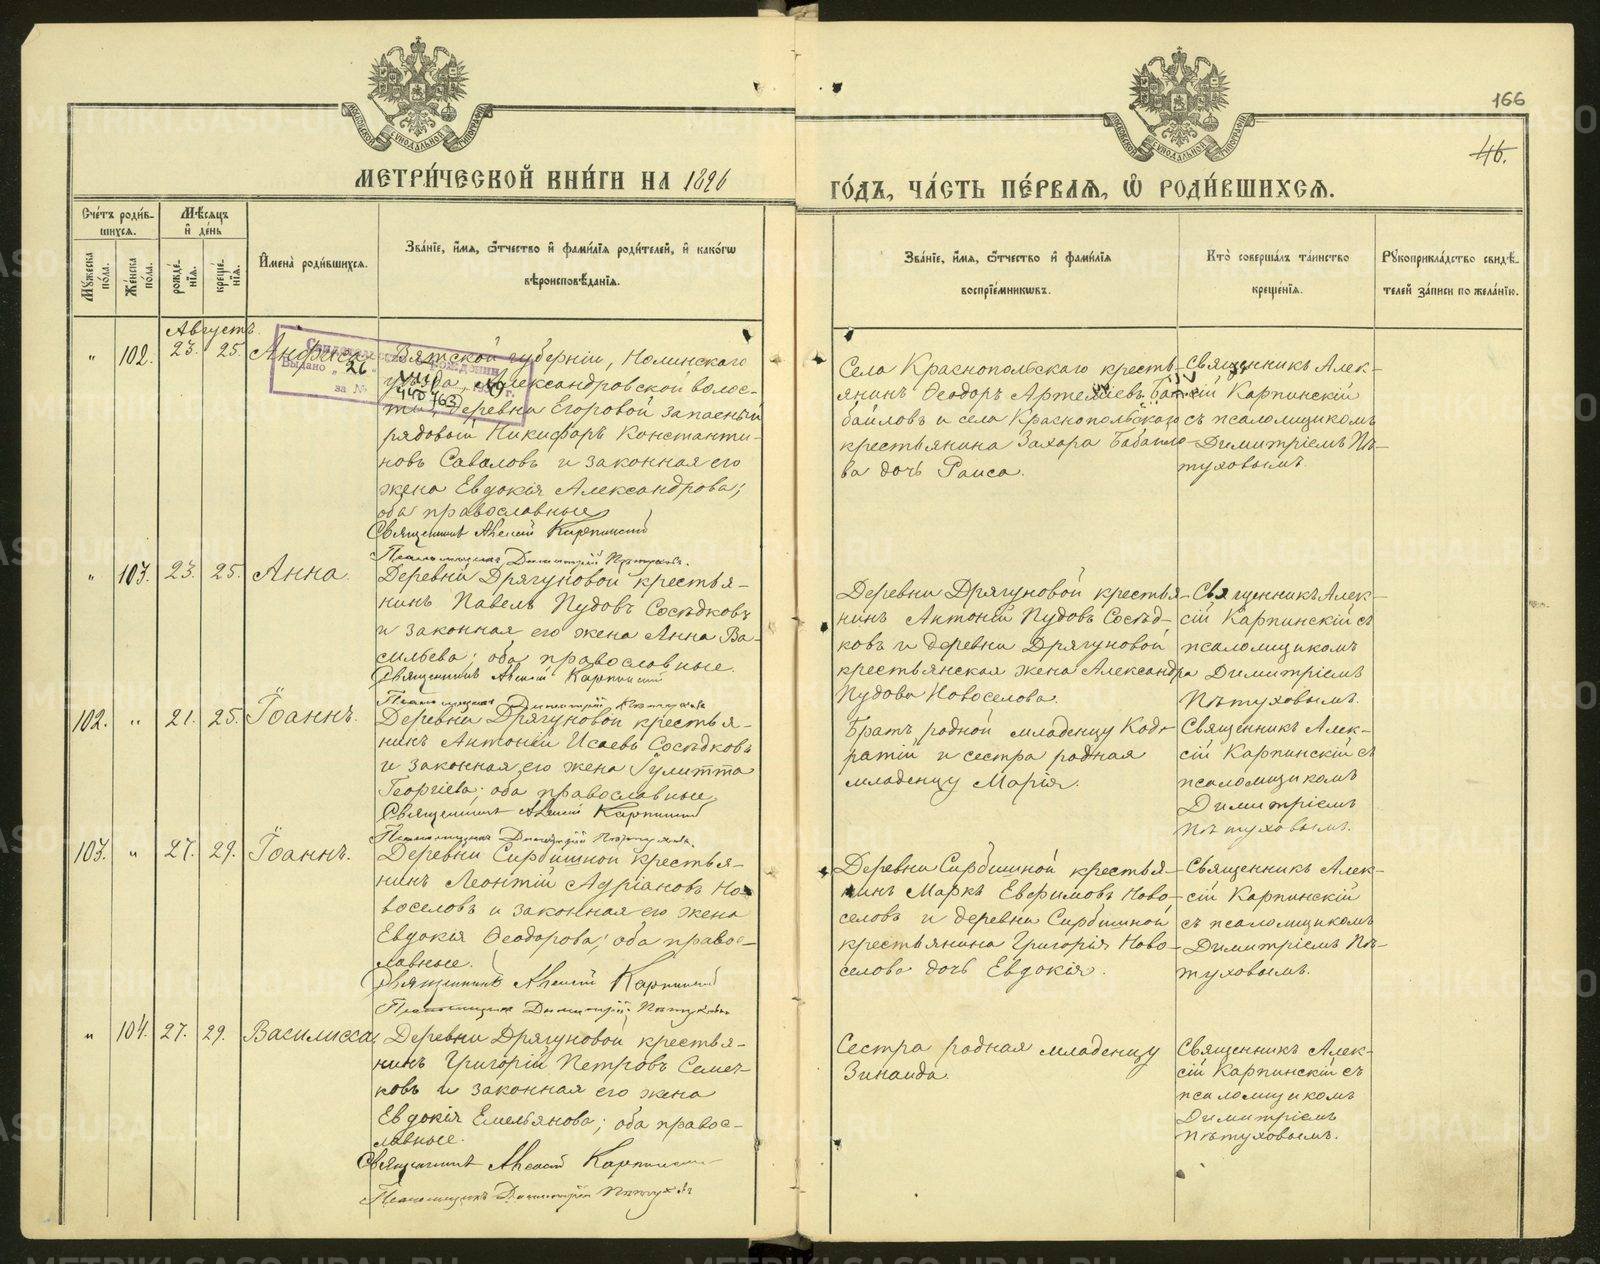 166
46.
МЕТРИ́ЧЕСКОЙ КНИ́ГИ НА 1896
ГО́ДЪ, ЧА́СТЬ ПЕ́РВАѦ, Ѽ РОДИ́ВШИХСѦ.
Сче́тъ роди́в-
шихсѧ.
Мѣ́сѧцъ
и҆ де́нь
Мꙋ́жеска
по́ла.
Же́нска
по́ла.
рожде́-
нїѧ.
креще́-
нїѧ.
И҆мена̀ роди́вшихсѧ.
Зва́нїе, и҆́мѧ, ѻ҆́тчество и҆ фами́лїѧ роди́телей, и҆ како́гѡ
вѣроисповѣ́данїѧ.
Зва́нїе, и҆́мѧ, ѻ҆́тчество и҆ фами́лїѧ
воспрїе́мникѡвъ.
Кто̀ соверша́лъ та́инство
креще́нїѧ.
Рꙋкоприкла́дство свидѣ́-
телей за́писи по жела́нїю.
Августъ.
„ 102. 23. 25.
Вятской губерніи, Нолинскаго
уѣзда, Александровской волос-
ти, деревни Егоровой запасный
рядовой Никифоръ Константи-
новъ Саваловъ и законная его
жена Евдокія Александрова;
оба православные
Священникъ Алексій Карпинскій
Псаломщикъ Димитрій Пѣтуховъ.
Села Краснопольскаго кресть-
янинъ Ѳеодоръ Артемиевъ Ба-
байловъ и села Краснопольскаго
крестьянина Захара Бабайло-
ва дочь Раиса.
Священникъ Алек-
сій Карпинскій
съ псаломщикомъ
Димитріемъ Пѣ-
туховымъ.
Выдано „26„
за №
г.
„ 103. 23. 25. Анна.
Деревни Дрягуновой крестья-
нинъ Павелъ Пудовъ Сосѣдковъ
и законная его жена Анна Ва-
сильева; оба православные.
Священникъ Алексій Карпинскій
Псаломщикъ Димитрій Пѣтуховъ
Деревни Дрягуновой крестья-
нинъ Антоній Пудовъ Сосѣд-
ковъ и деревни Дрягуновой
крестьянская жена Александра
Пудова Новоселова.
Священникъ Алек-
сій Карпинскій съ
псаломщикомъ
Димитріемъ
Пѣтуховымъ.
102. „ 21. 25. Іоаннъ.
Деревни Дрягуновой крестья-
нинъ Антоній Исаевъ Сосѣдковъ
и законная его жена Іулитта
Георгіева; оба православные
Священникъ Алексій Карпинскій
Псаломщикъ Димитрій Пѣтуховъ.
Братъ родной младенцу Код-
ратій и сестра родная
младенцу Марія.
Священникъ Алек-
сій Карпинскій съ
псаломщикомъ
Димитріемъ
Пѣтуховымъ.
103. „ 27. 29. Іоаннъ.
Деревни Сирбишной крестья-
нинъ Леонтій Адріановъ Но-
воселовъ и законная его жена
Евдокія Ѳеодорова; оба правос-
лавные.
Священникъ Алексій Карпинскій
Псаломщикъ Димитрій Пѣтуховъ
Деревни Сирбишной крестья-
нинъ Маркъ Евфимовъ Ново-
селовъ и деревни Сирбишной
крестьянина Григорія Ново-
селова дочь Евдокія.
Священникъ Алек-
сій Карпинскій
съ псаломщикомъ
Димитріемъ Пѣ-
туховымъ.
„ 104. 27. 29. Василисса
Деревни Дрягуновой крестья-
нинъ Григорій Петровъ Семеч-
ковъ и законная его жена
Евдокія Емельянова; оба правос-
лавные.
Священникъ Алексій Карпинскій
Псаломщикъ Димитрій Пѣтуховъ
Сестра родная младенцу
Зинаида.
Священникъ Алек-
сій Карпинскій съ
псаломщикомъ
Димитріемъ
Пѣтуховымъ.
METRIKI.GASO-URAL.RU